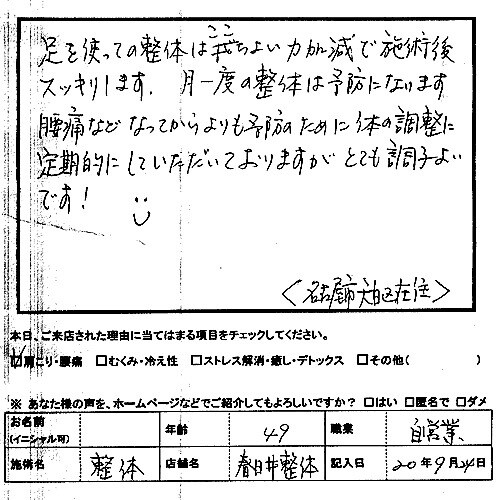 足を使っての整体はここちよい力加減で施術後
スッキリします。月一度の整体は予防になります
腰痛などなってからよりも予防のために体の調整に
定期的にしていただいておりますがとても調子よい
です!
<名古屋市天白区在住>
本日、ご来店された理由に当てはまる項目をチェックしてください。
☑肩こり・腰痛 □むくみ・冷え性 □ストレス解消・癒し・デトックス □その他( )
※ あなた様の声を、ホームページなどでご紹介してもよろしいですか? □はい □匿名で □ダメ
お名前 (イニシャル可) 年齢 49 職業 自営業
施術名 整体 店舗名 春日井整体 記入日 20年9月24日